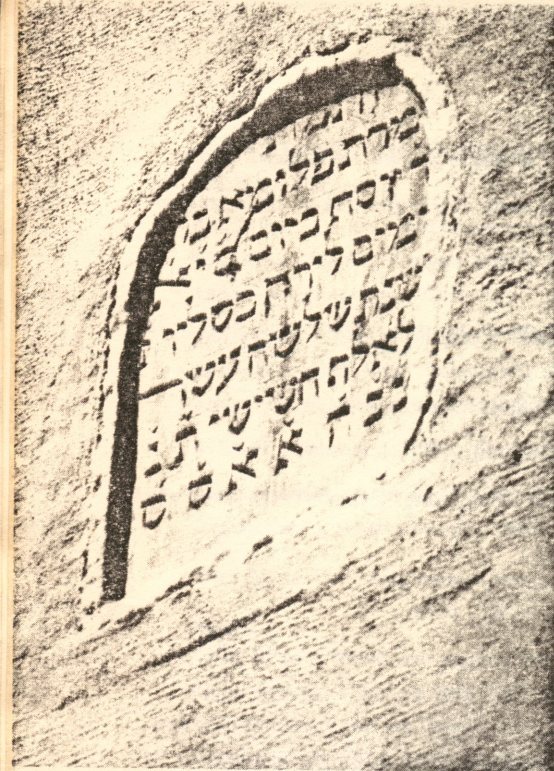 מרת פלומא
יוסף ביום
ימים לירח כסליו
שנת שלשה עשר
לאלף הששי ת נ
צ ב ה א א ס ס